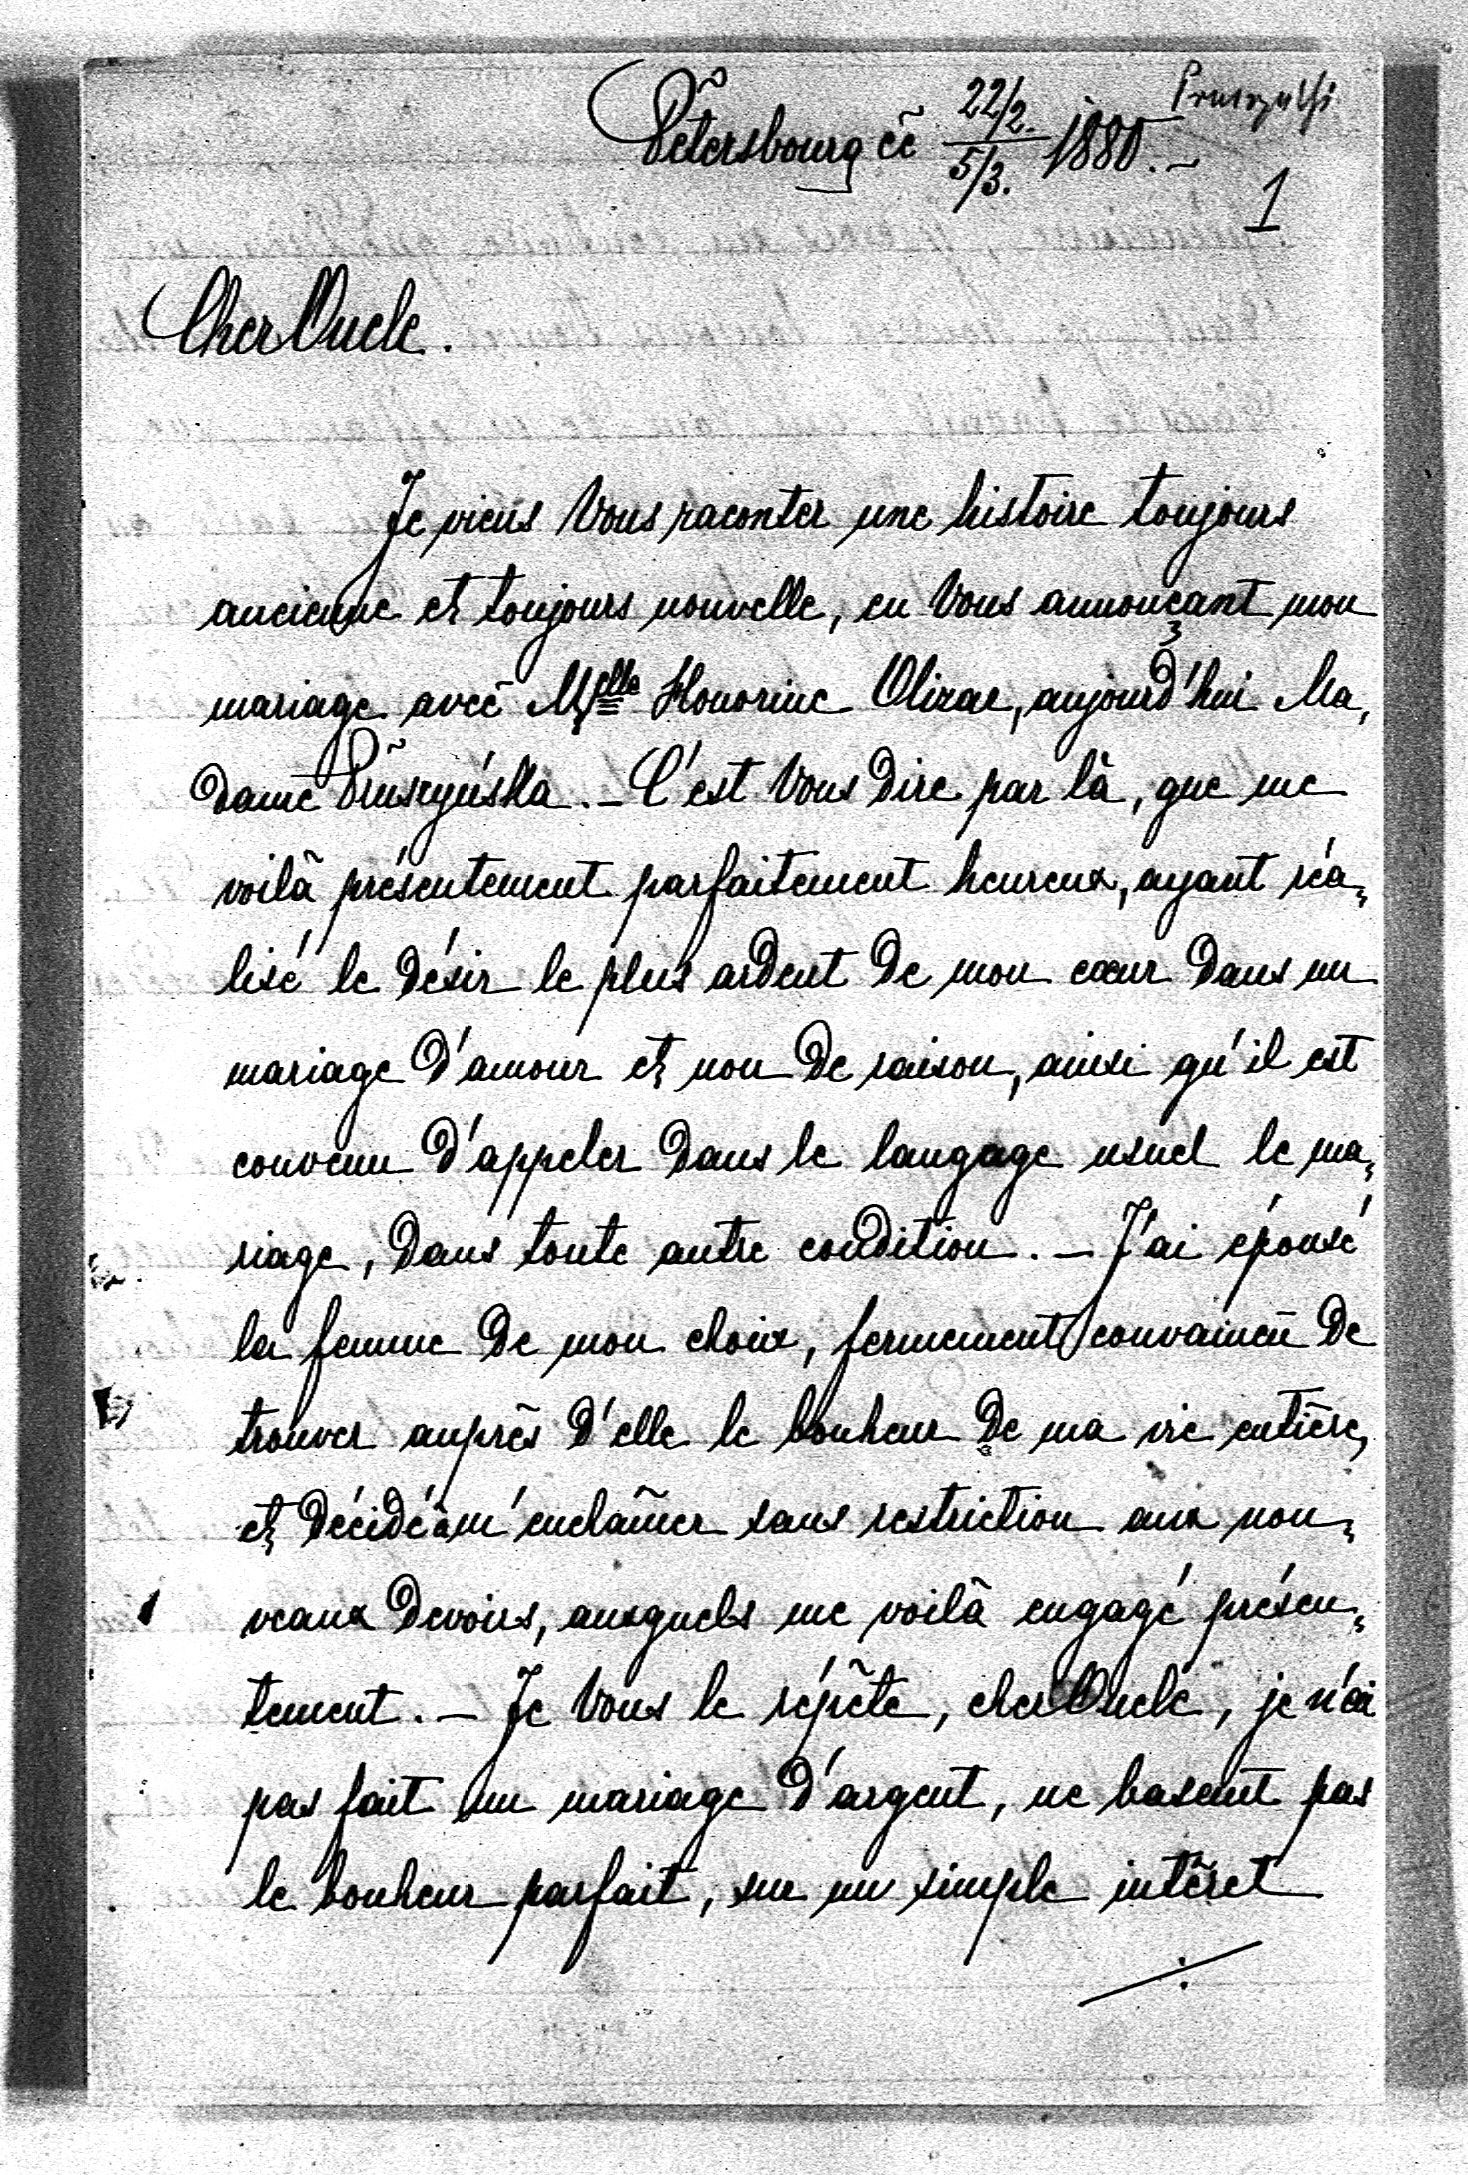 Pétersbourg ce 22/2. 5/3. 1880. –
1
Cher Oncle.
Je viens Vous raconter une histoire toujours
ancienne et toujours nouvelle, en Vous annonçant mon
mariage avec Mselle Honorine Olizar, aujourd'hui Ma,
dame Pruszyńska. – C'est Vous dire par là, que me
voilà présentement parfaitement heureux, ayant réa,
lisé le désir le plus ardent de mon cœur dans un
mariage d'amour et non de raison, ainsi qu'il est
convenu d'appeler dans le langage usuel le ma,
riage, dans toute autre condition. – J'ai épousé
la femme de mon choix, fermement convaincu de
trouver auprès d'elle le bonheur de ma vie entière,
et décidé à m'enchaîner sans restriction aux nou,
veaux devoirs, auxquels me voilà engagé présen,
tement. – Je Vous le répète, cher Oncle, je n'ai
pas fait un mariage d'argent, ne basant pas
le bonheur parfait, sur un simple intêret